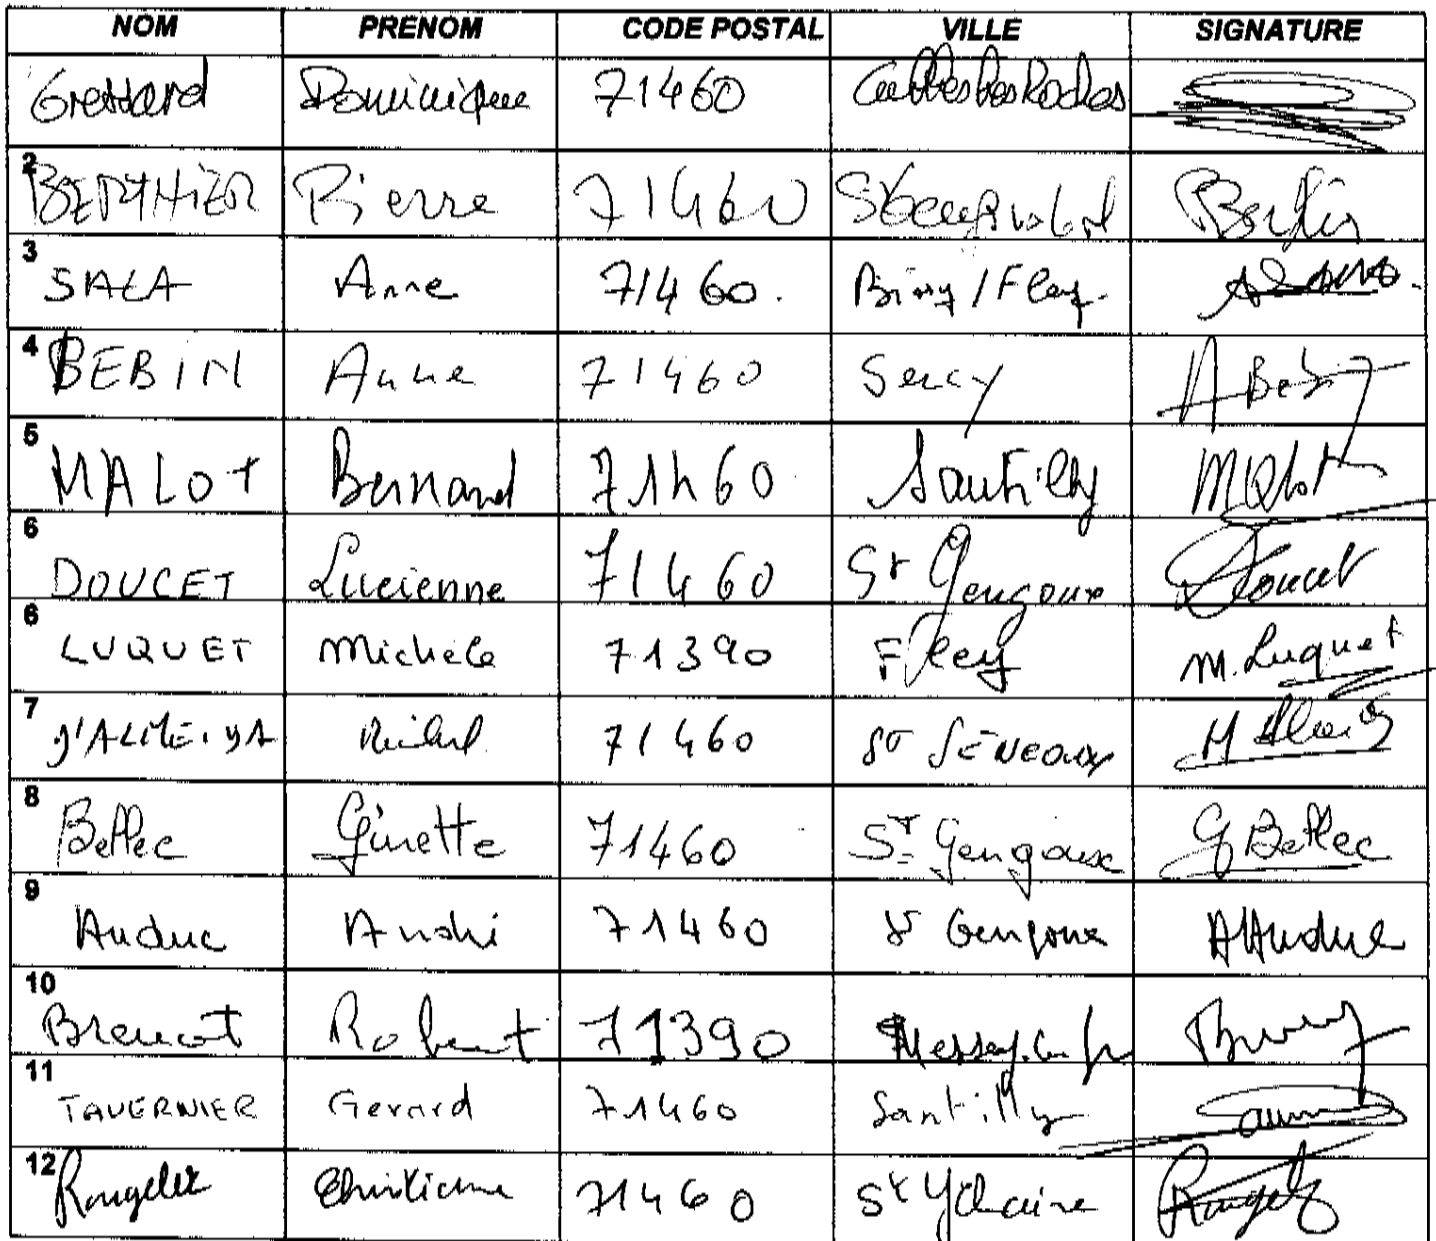 NOM PRENOM CODE POSTAL VILLE SIGNATURE
Dominique 71460
2 BERTHIER Pierre 71460
3 SALA Anne 71460. Bissy / Fley
4 BEBIN Anne 71460 Sercy A Bebin
5 MALOT Bernard 71460 Santilly Malot
6 DOUCET Lucienne 71460 St Gengoux Doucet
6 LUQUET Michele 71390 Fley M. Luquet
7 D'ALMEIDA Michel 71460 ST GENGOUX
8 Bellec Ginette 71460 ST Gengoux G Bellec
9 Auduc André 71460 St Gengoux A Auduc
10 Robert 71390
11 TAVERNIER Gerard 71460 Santilly
12 Christiane 71460 St Ythaire